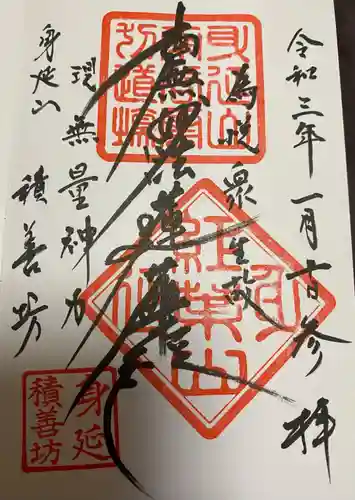 令和三年一月十日参拝
為悦衆生故
南無妙法蓮華経
現無量神力
身延山 積善坊
身延山
紅葉山
身延
積善坊